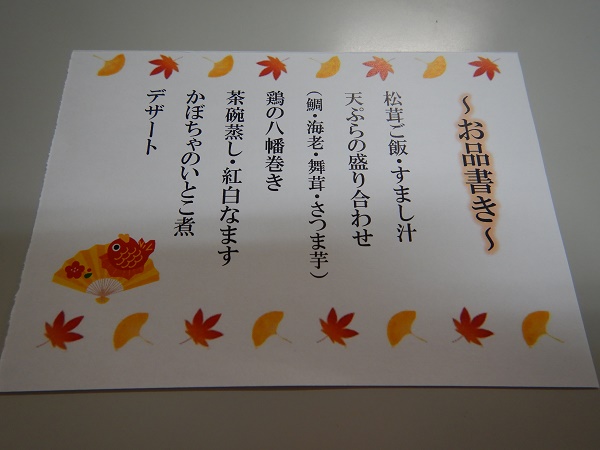 ～お品書き～
松茸ご飯・すまし汁
天ぷらの盛り合わせ
（鯛・海老・舞茸・さつま芋）
鶏の八幡巻き
茶碗蒸し・紅白なます
かぼちゃのいとこ煮
デザート